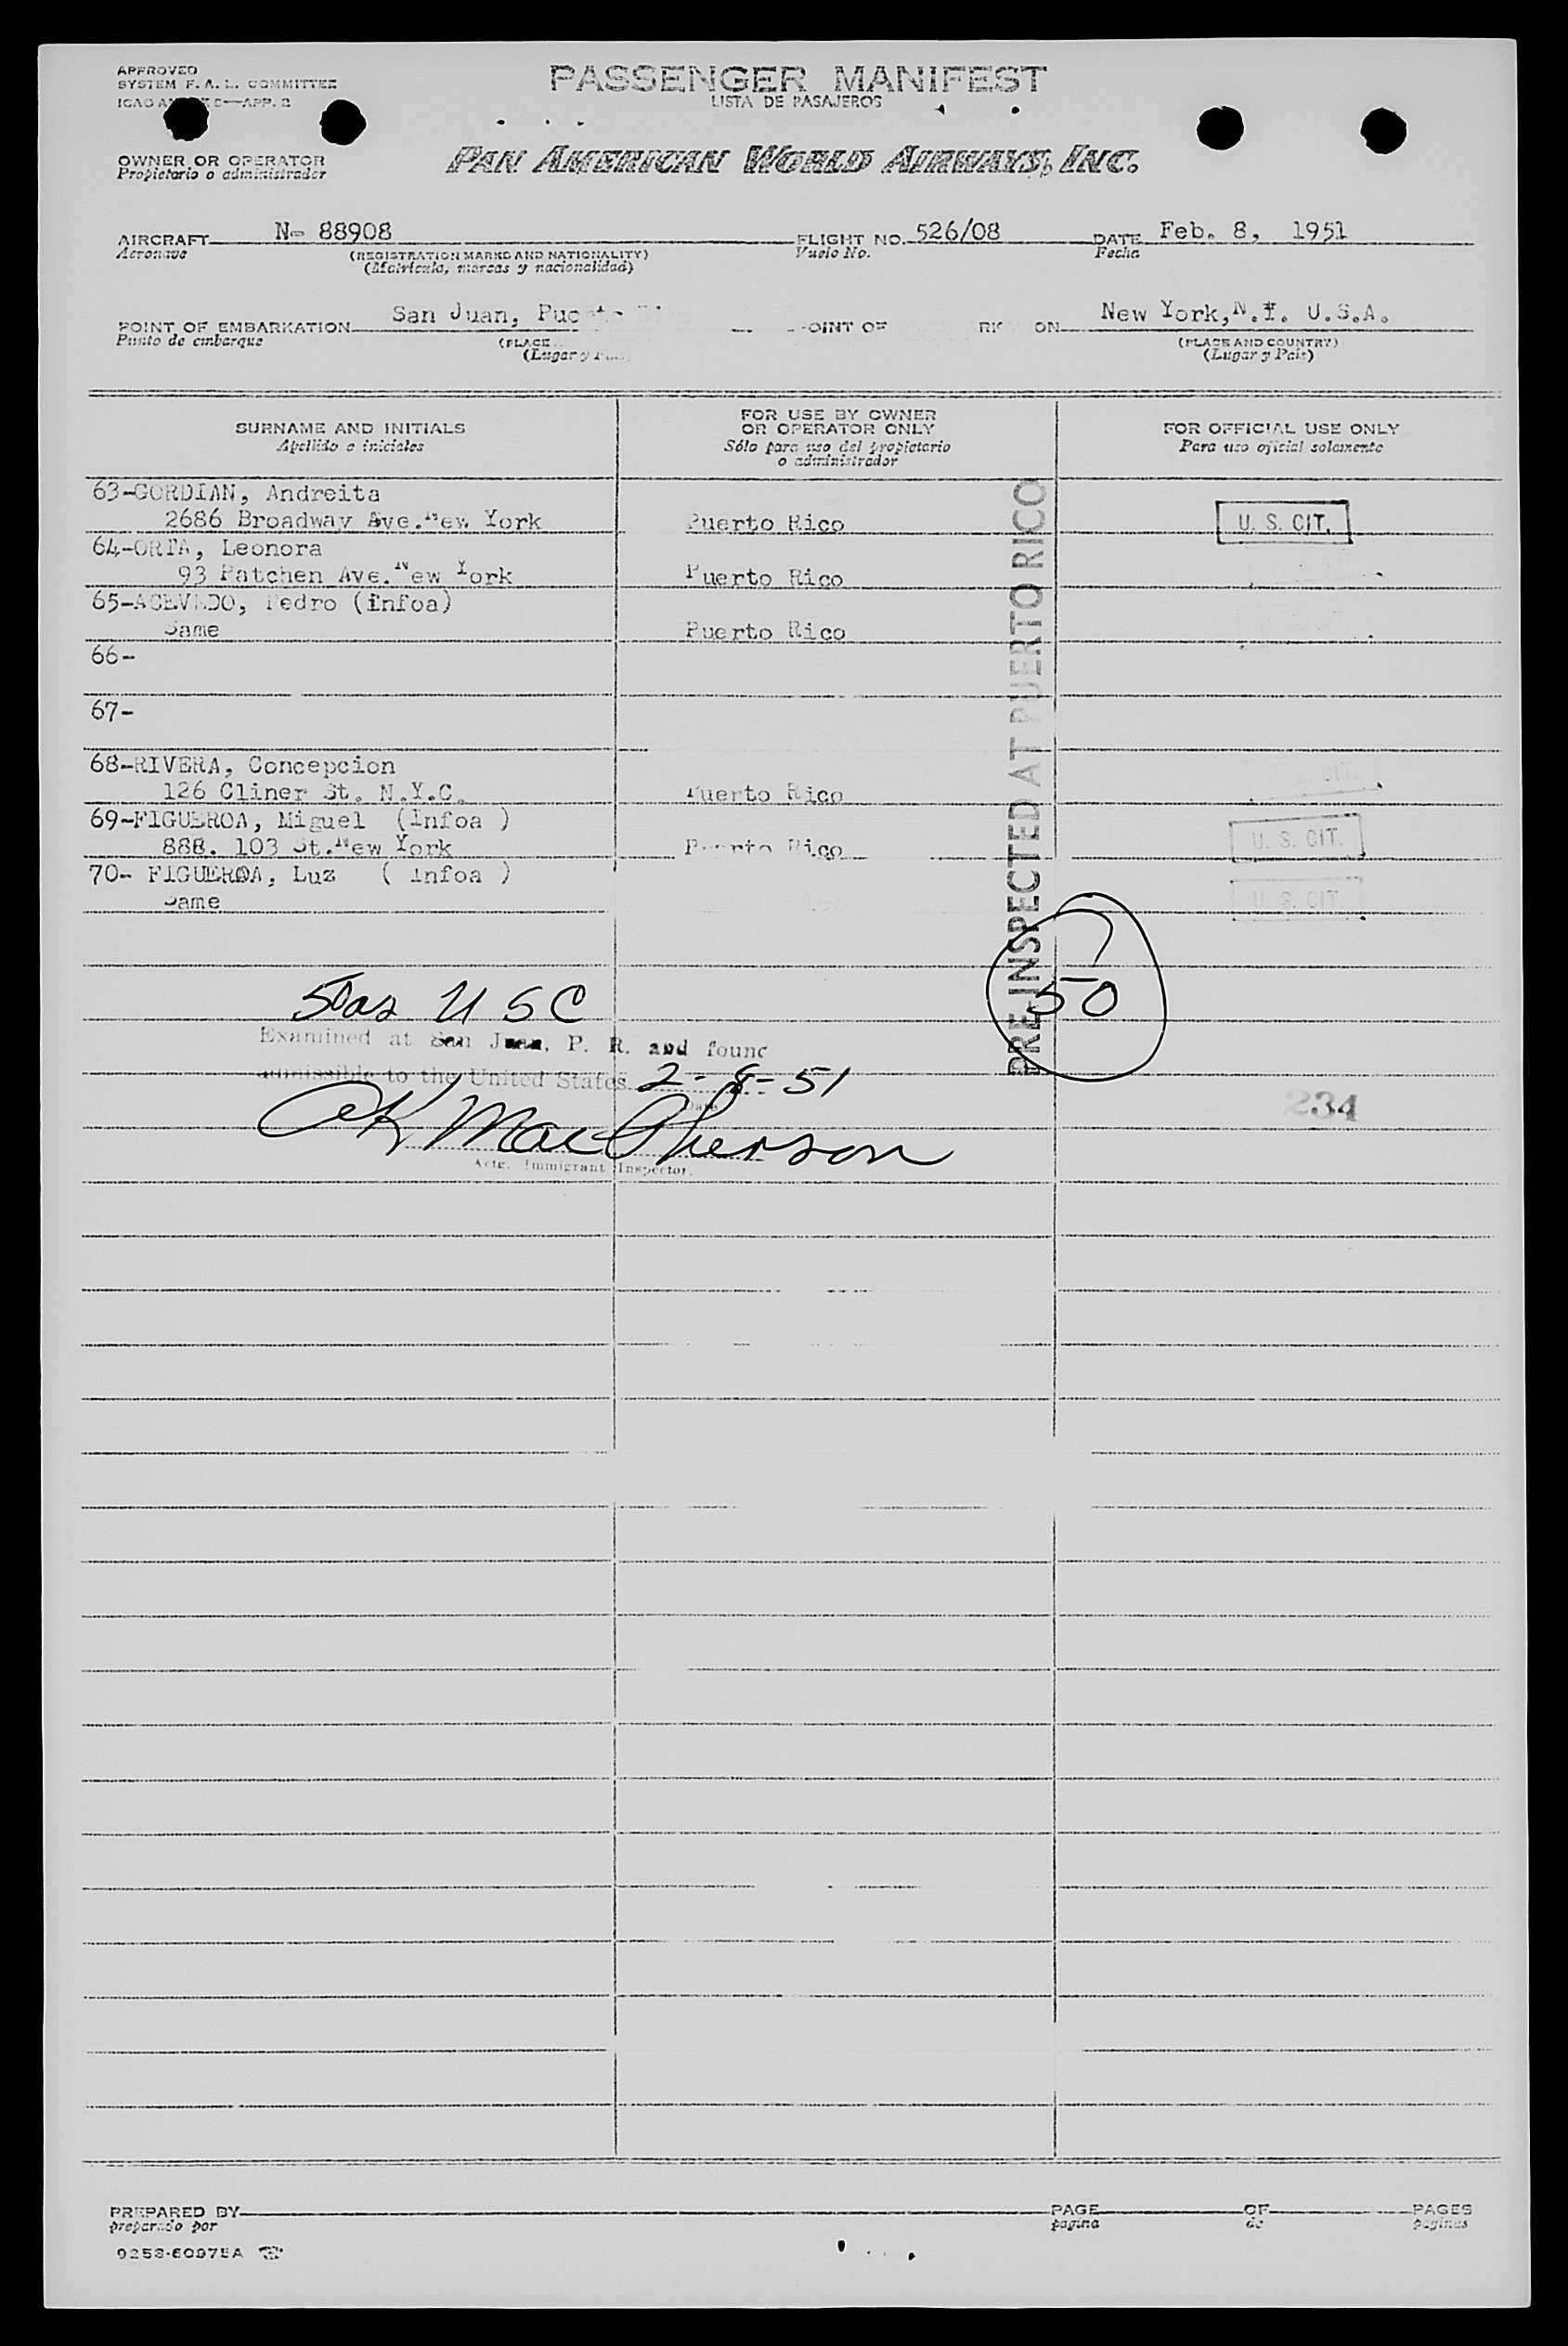 APPROVED
SYSTEM F. A. L. COMMITTEE
PASSENGER MANIFEST
LISTA DE PASAJEROS
OWNER OR OPERATOR
Propietario o administrador
PAN AMERICAN WORLD AIRWAYS, INC.
AIRCRAFT N- 88908 FLIGHT NO. 526/08 DATE Feb. 8, 1951
Aeronave (REGISTRATION MARKS AND NATIONALITY) Vuelo No. Fecha
(Matrícula, marcas y nacionalidad)
POINT OF EMBARKATION San Juan, POINT OF New York, N.Y. U.S.A.
Punto de embarque (PLACE (PLACE AND COUNTRY)
(Lugar y (Lugar y País)
SURNAME AND INITIALS FOR USE BY OWNER OR OPERATOR ONLY FOR OFFICIAL USE ONLY
Apellido e iniciales Sólo para uso del propietario o administrador Para uso oficial solamente
63-GORDIAN, Andreita
2686 Broadway Ave. New York Puerto Rico U. S. CIT.
64- Leonora
93 Patchen Ave. New York Puerto Rico
65-ACEVEDO, Pedro (infoa)
Same Puerto Rico
66-
67-
68-RIVERA, Concepcion
126 Cliner St. N.Y.C. Puerto Rico
69-FIGUEROA, Miguel (infoa )
888. 103 St. New York Puerto Rico U. S. CIT.
70- FIGUEROA, Luz ( infoa )
Same U. S. CIT.
PRE-INSPECTED AT PUERTO RICO
50
USC
Examined at San Juan, P. R. and found
admissible to the United States 2-8-51
Date
234
MacPherson
Actg. Immigrant Inspector.
PREPARED BY PAGE OF PAGES
preparado por pagina de paginas
9253-60975A